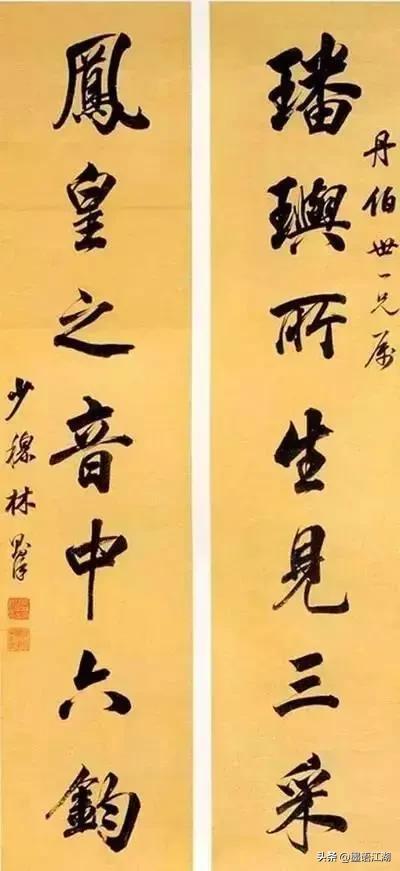 丹伯世一兄属
璠璵所生見三采
鳳皇之音中六鈞
少穆林則徐
头条 @墨语江湖